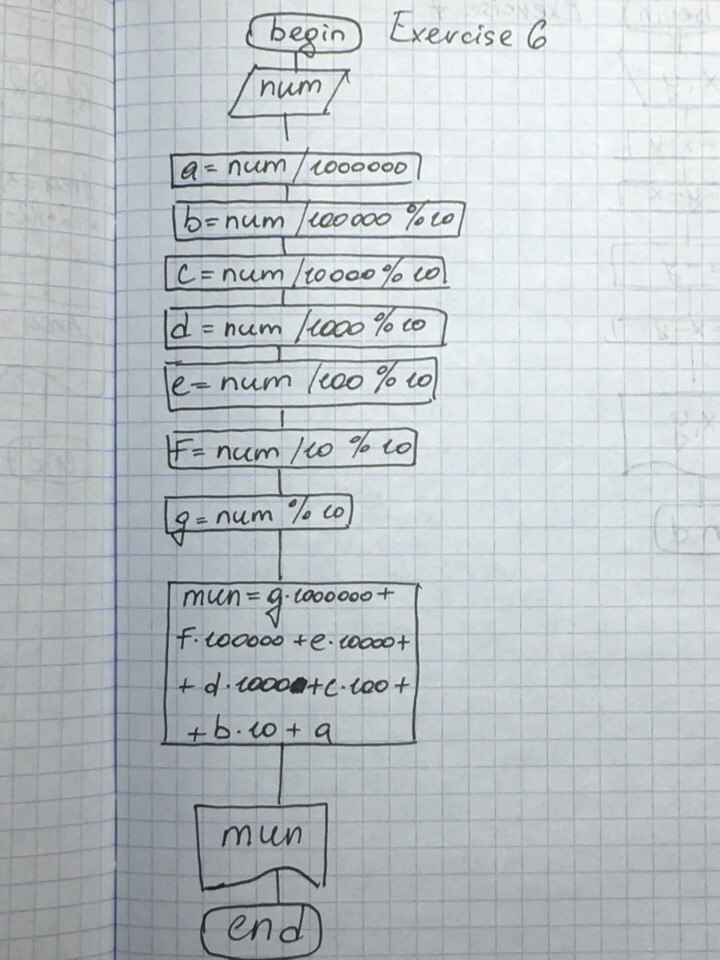 begin Exercise 6
num
a = num / 1000000
b = num / 100000 % 10
c = num / 10000 % 10
d = num / 1000 % 10
e = num / 100 % 10
f = num / 10 % 10
g = num % 10
mun = g·1000000 +
f·100000 + e·10000 +
+ d·1000 + c·100 +
+ b·10 + a
mun
end